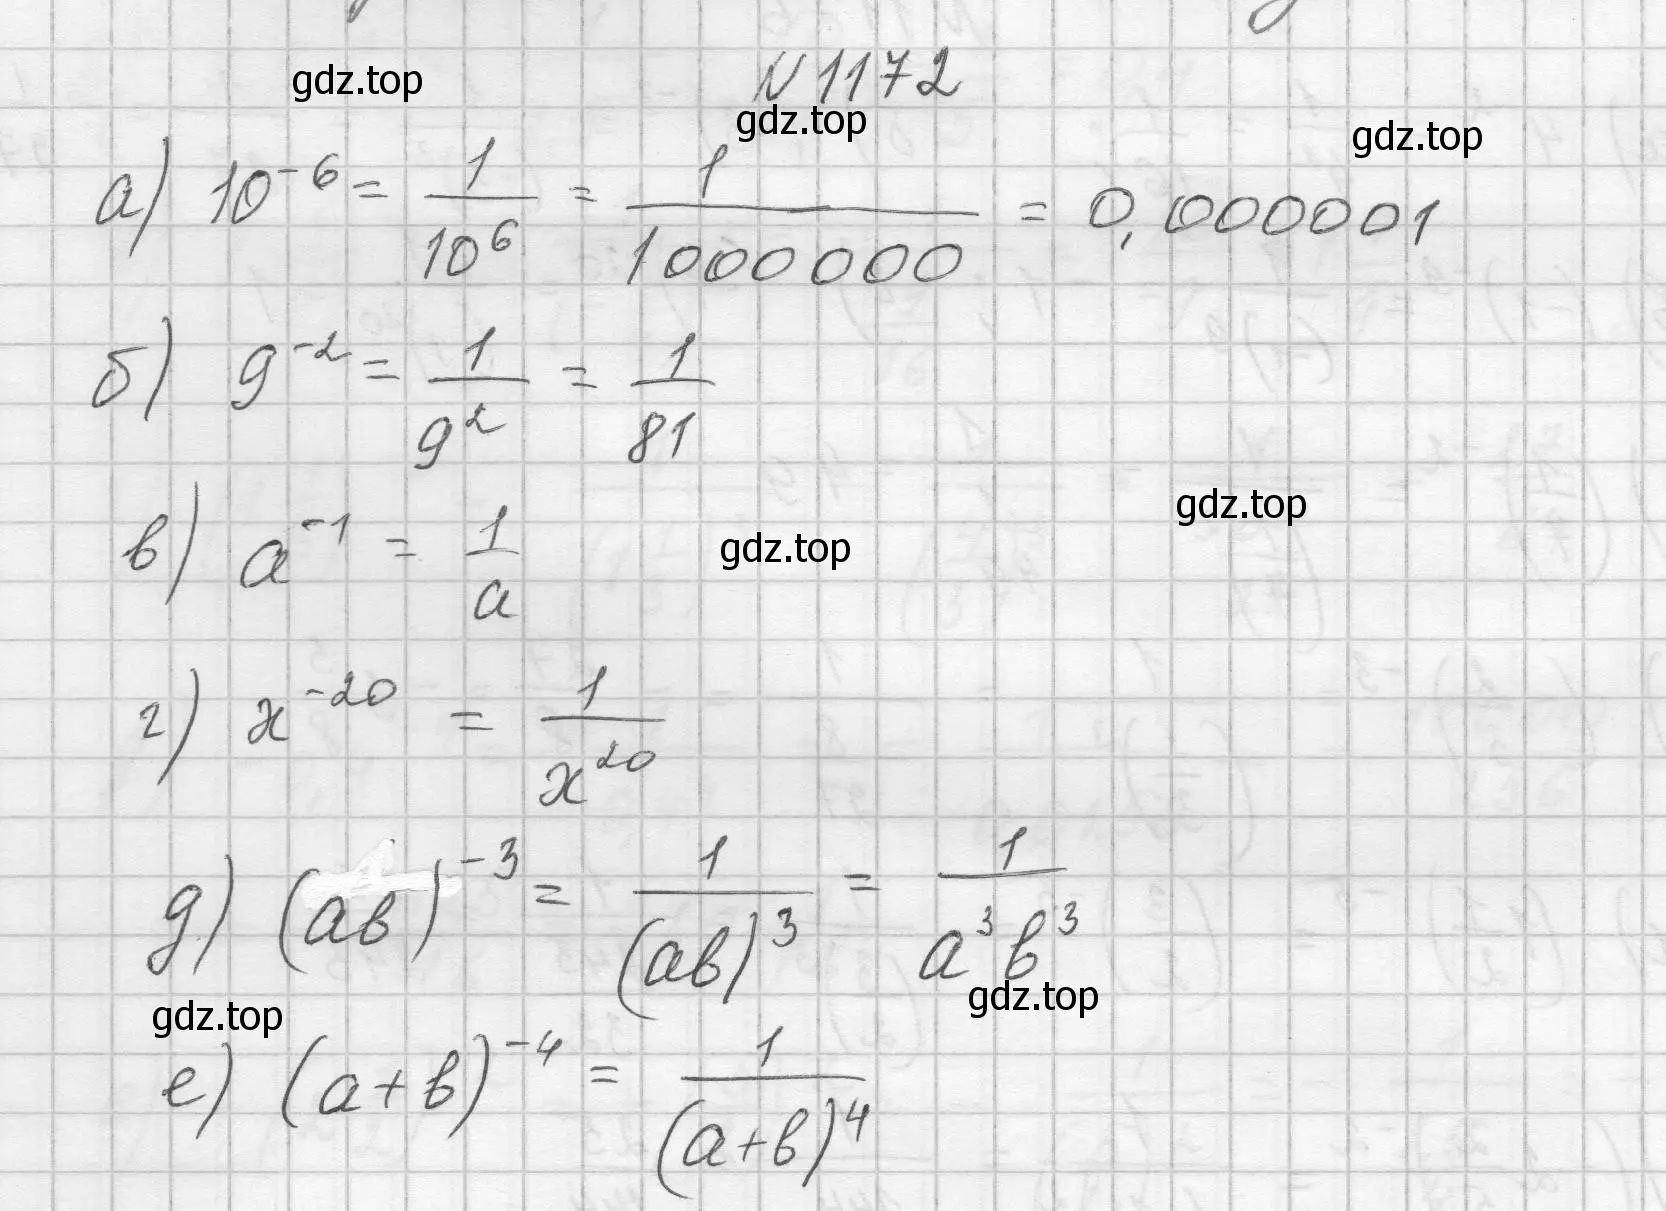 N 1172
а) 10^{-6} = 1/10^6 = 1/1000000 = 0,000001
б) 9^{-2} = 1/9^2 = 1/81
в) a^{-1} = 1/a
г) x^{-20} = 1/x^{20}
д) (ab)^{-3} = 1/(ab)^3 = 1/a^3b^3
е) (a+b)^{-4} = 1/(a+b)^4
gdz.top
gdz.top
gdz.top
gdz.top
gdz.top
gdz.top
gdz.top